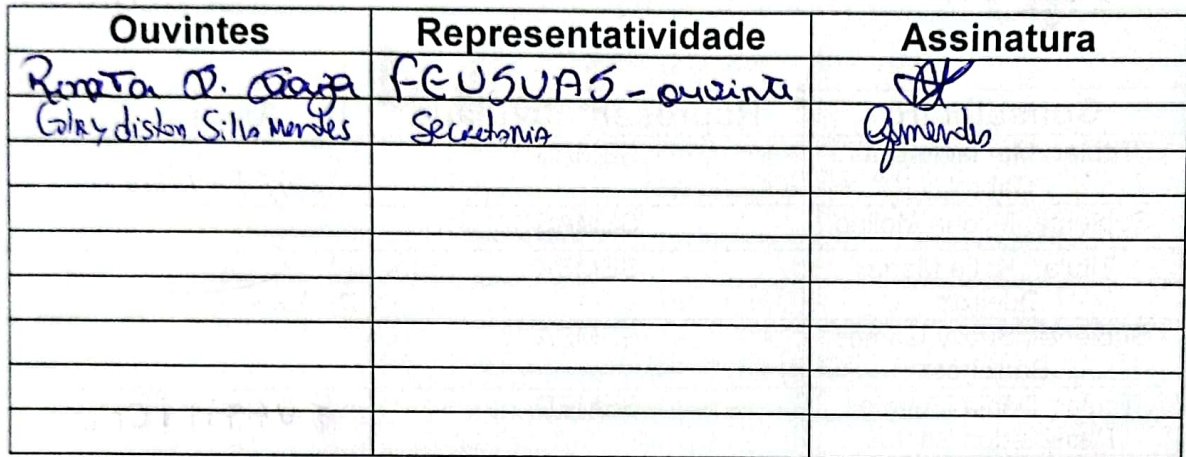 Ouvintes Representatividade Assinatura
Renata O. FEUSUAS - ouvinte
Silva Mendes Secretaria Gmendes